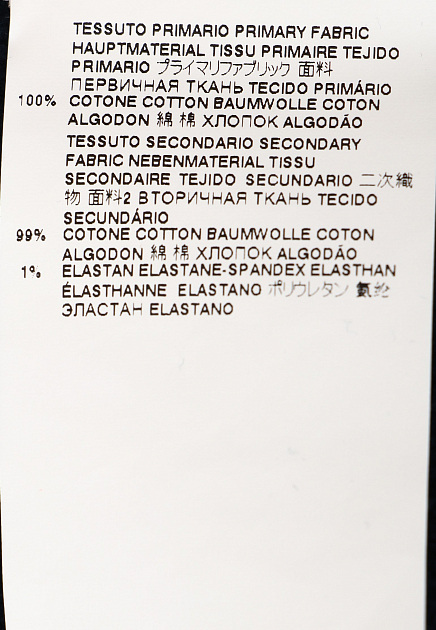 TESSUTO PRIMARIO PRIMARY FABRIC
HAUPTMATERIAL TISSU PRIMAIRE TEJIDO
PRIMARIO プライマリファブリック 面料
ПЕРВИЧНАЯ ТКАНЬ TECIDO PRIMÁRIO
100% COTONE COTTON BAUMWOLLE COTON
ALGODON 綿 棉 ХЛОПОК ALGODÃO
TESSUTO SECONDARIO SECONDARY
FABRIC NEBENMATERIAL TISSU
SECONDAIRE TEJIDO SECUNDARIO 二次織
物 面料2 ВТОРИЧНАЯ ТКАНЬ TECIDO
SECUNDÁRIO
99% COTONE COTTON BAUMWOLLE COTON
ALGODON 綿 棉 ХЛОПОК ALGODÃO
1% ELASTAN ELASTANE-SPANDEX ELASTHAN
ÉLASTHANNE ELASTANO ポリウレタン 氨纶
ЭЛАСТАН ELASTANO